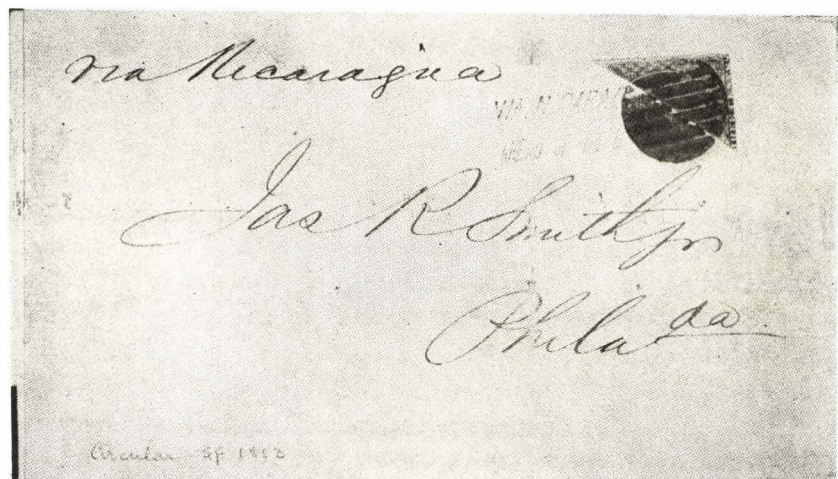 via Nicaragua
VIA
Jas R Smith Jr
Phila da
Circular SF 1853